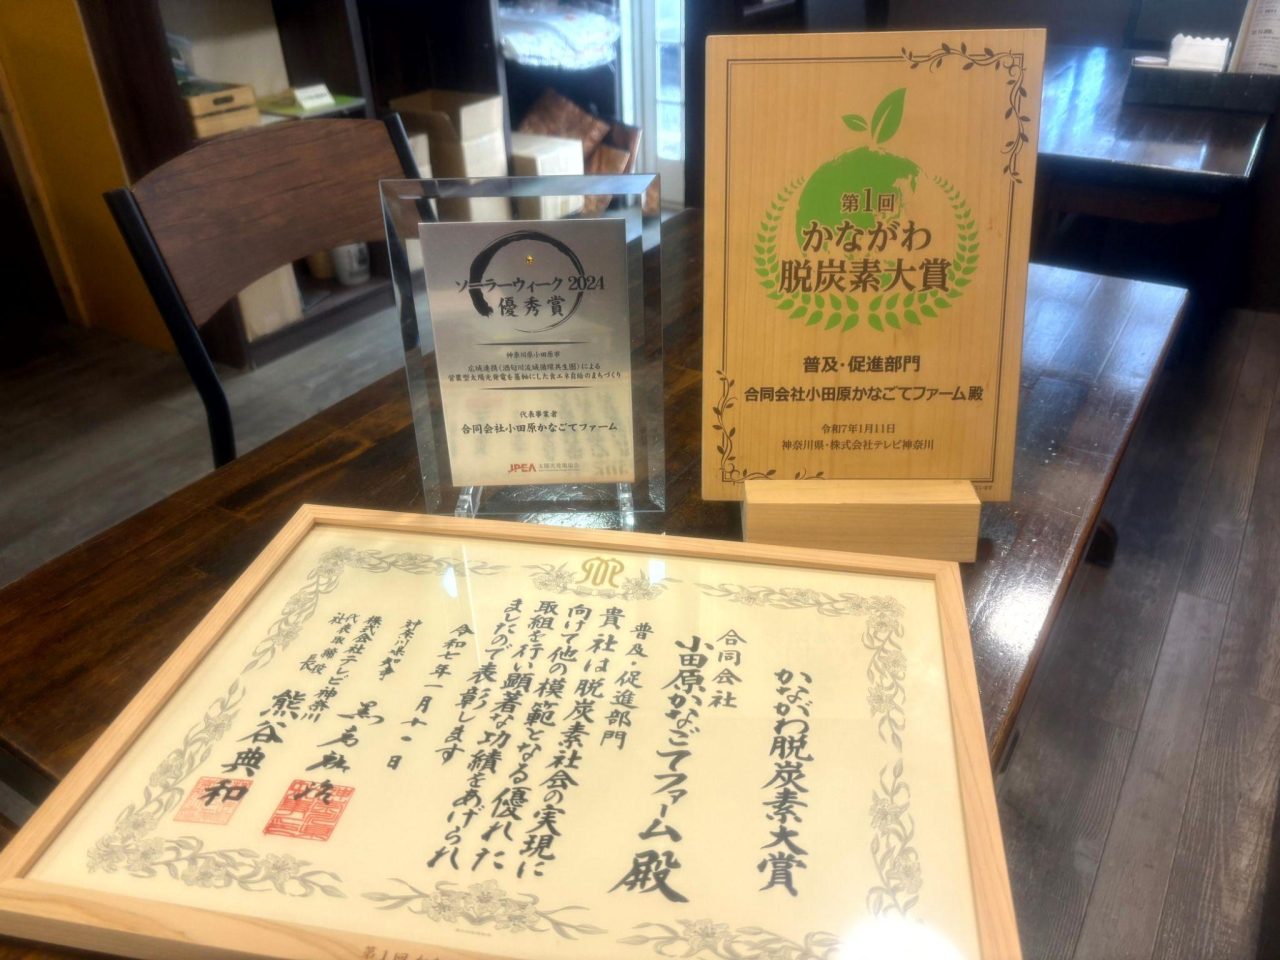 ソーラーウィーク 2024
優秀賞
神奈川県小田原市
広域連携(酒匂川流域循環共生圏)による
営農型太陽光発電を基軸にした食エネ自給のまちづくり
代表事業者
合同会社小田原かなごてファーム
JPEA 太陽光発電協会
第1回
かながわ
脱炭素大賞
普及・促進部門
合同会社小田原かなごてファーム殿
令和7年1月11日
神奈川県・株式会社テレビ神奈川
かながわ脱炭素大賞
合同会社
小田原かなごてファーム殿
普及・促進部門
貴社は脱炭素社会の実現に
向けて他の模範となる優れた
取組を行い顕著な功績をあげられ
ましたので表彰します
令和七年一月十一日
神奈川県知事 黒岩祐治
株式会社テレビ神奈川
代表取締役
社長 熊谷典和
第1回